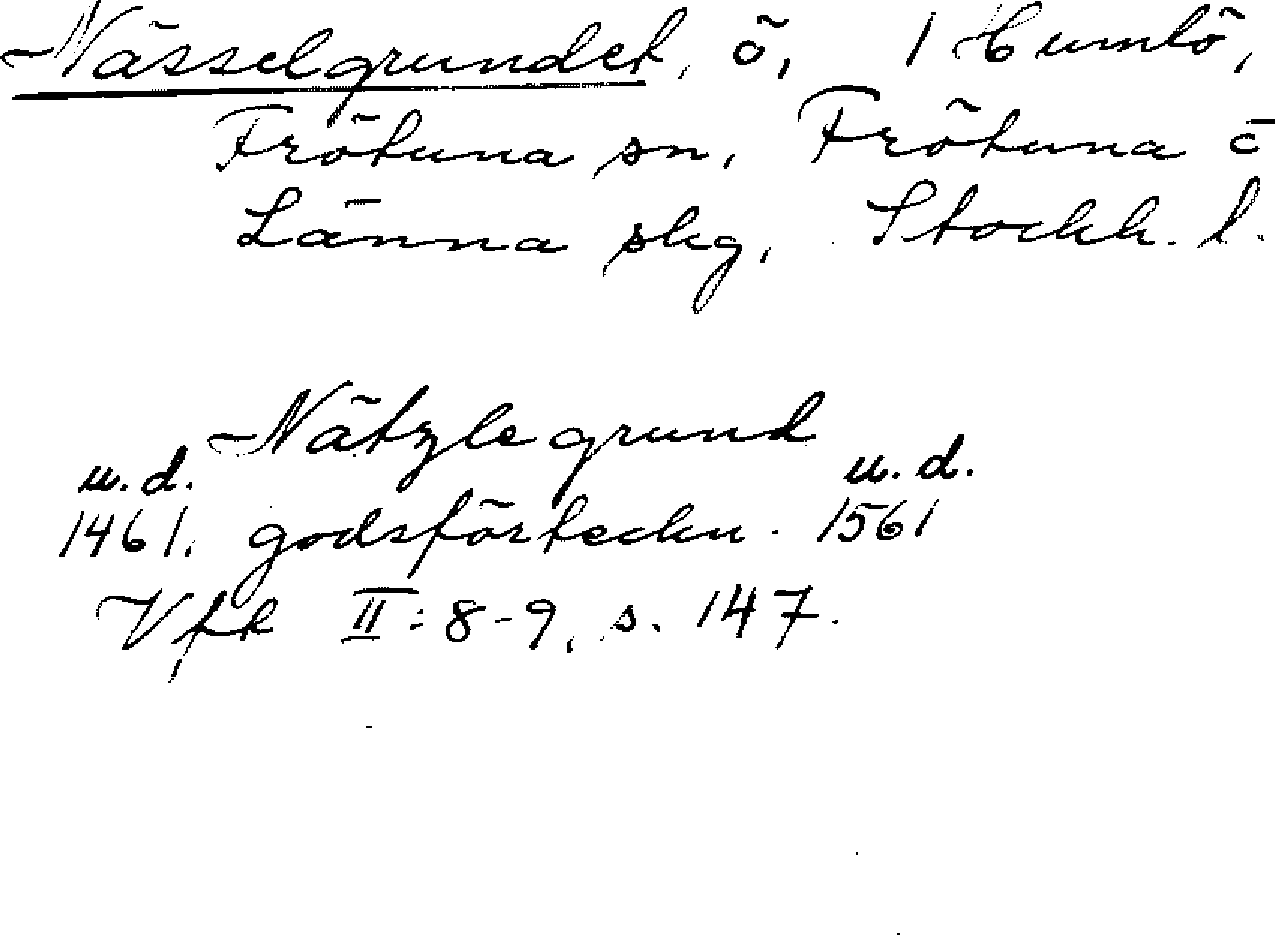 Nässelgrundet, ö, 1 Humlö,
Frötuna sn, Frötuna o
Länna skg, Stockh. l.
Nätzlegrund
u.d. u.d.
1461. godsförteckn. 1561
Vfk II:8-9, s. 147.